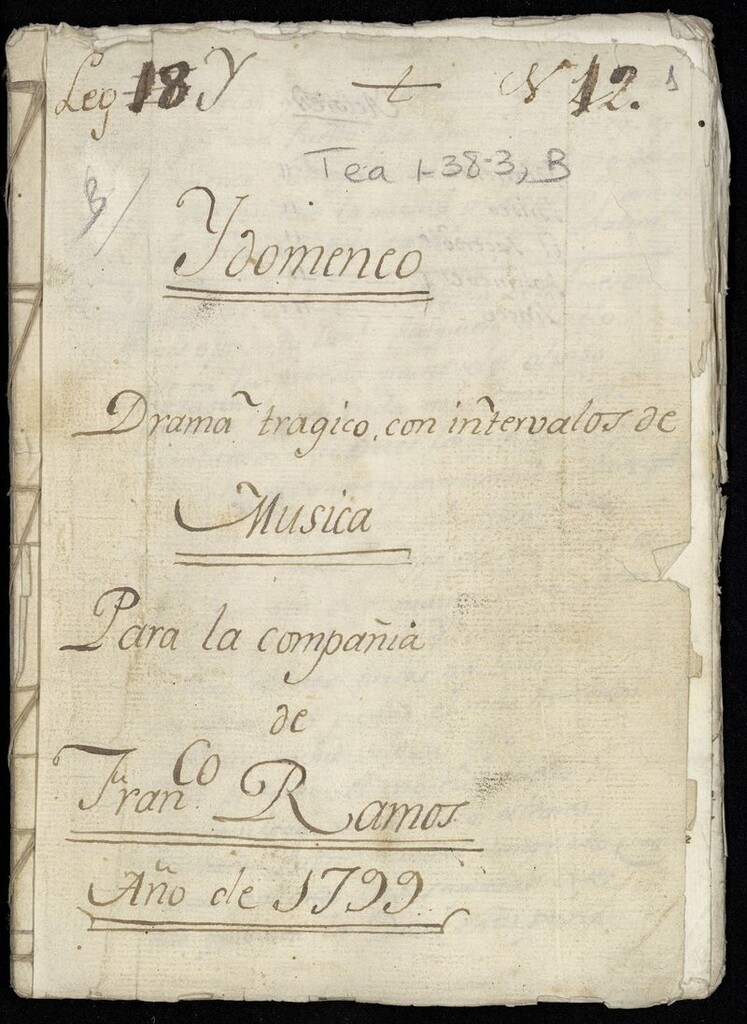 Leg 18 Y N 12. 1
Tea 1-38-3, B
B/
Ydomeneo
Drama tragico, con intervalos de
Musica
Para la compañia
de
Fran.co Ramos
Año de 1799